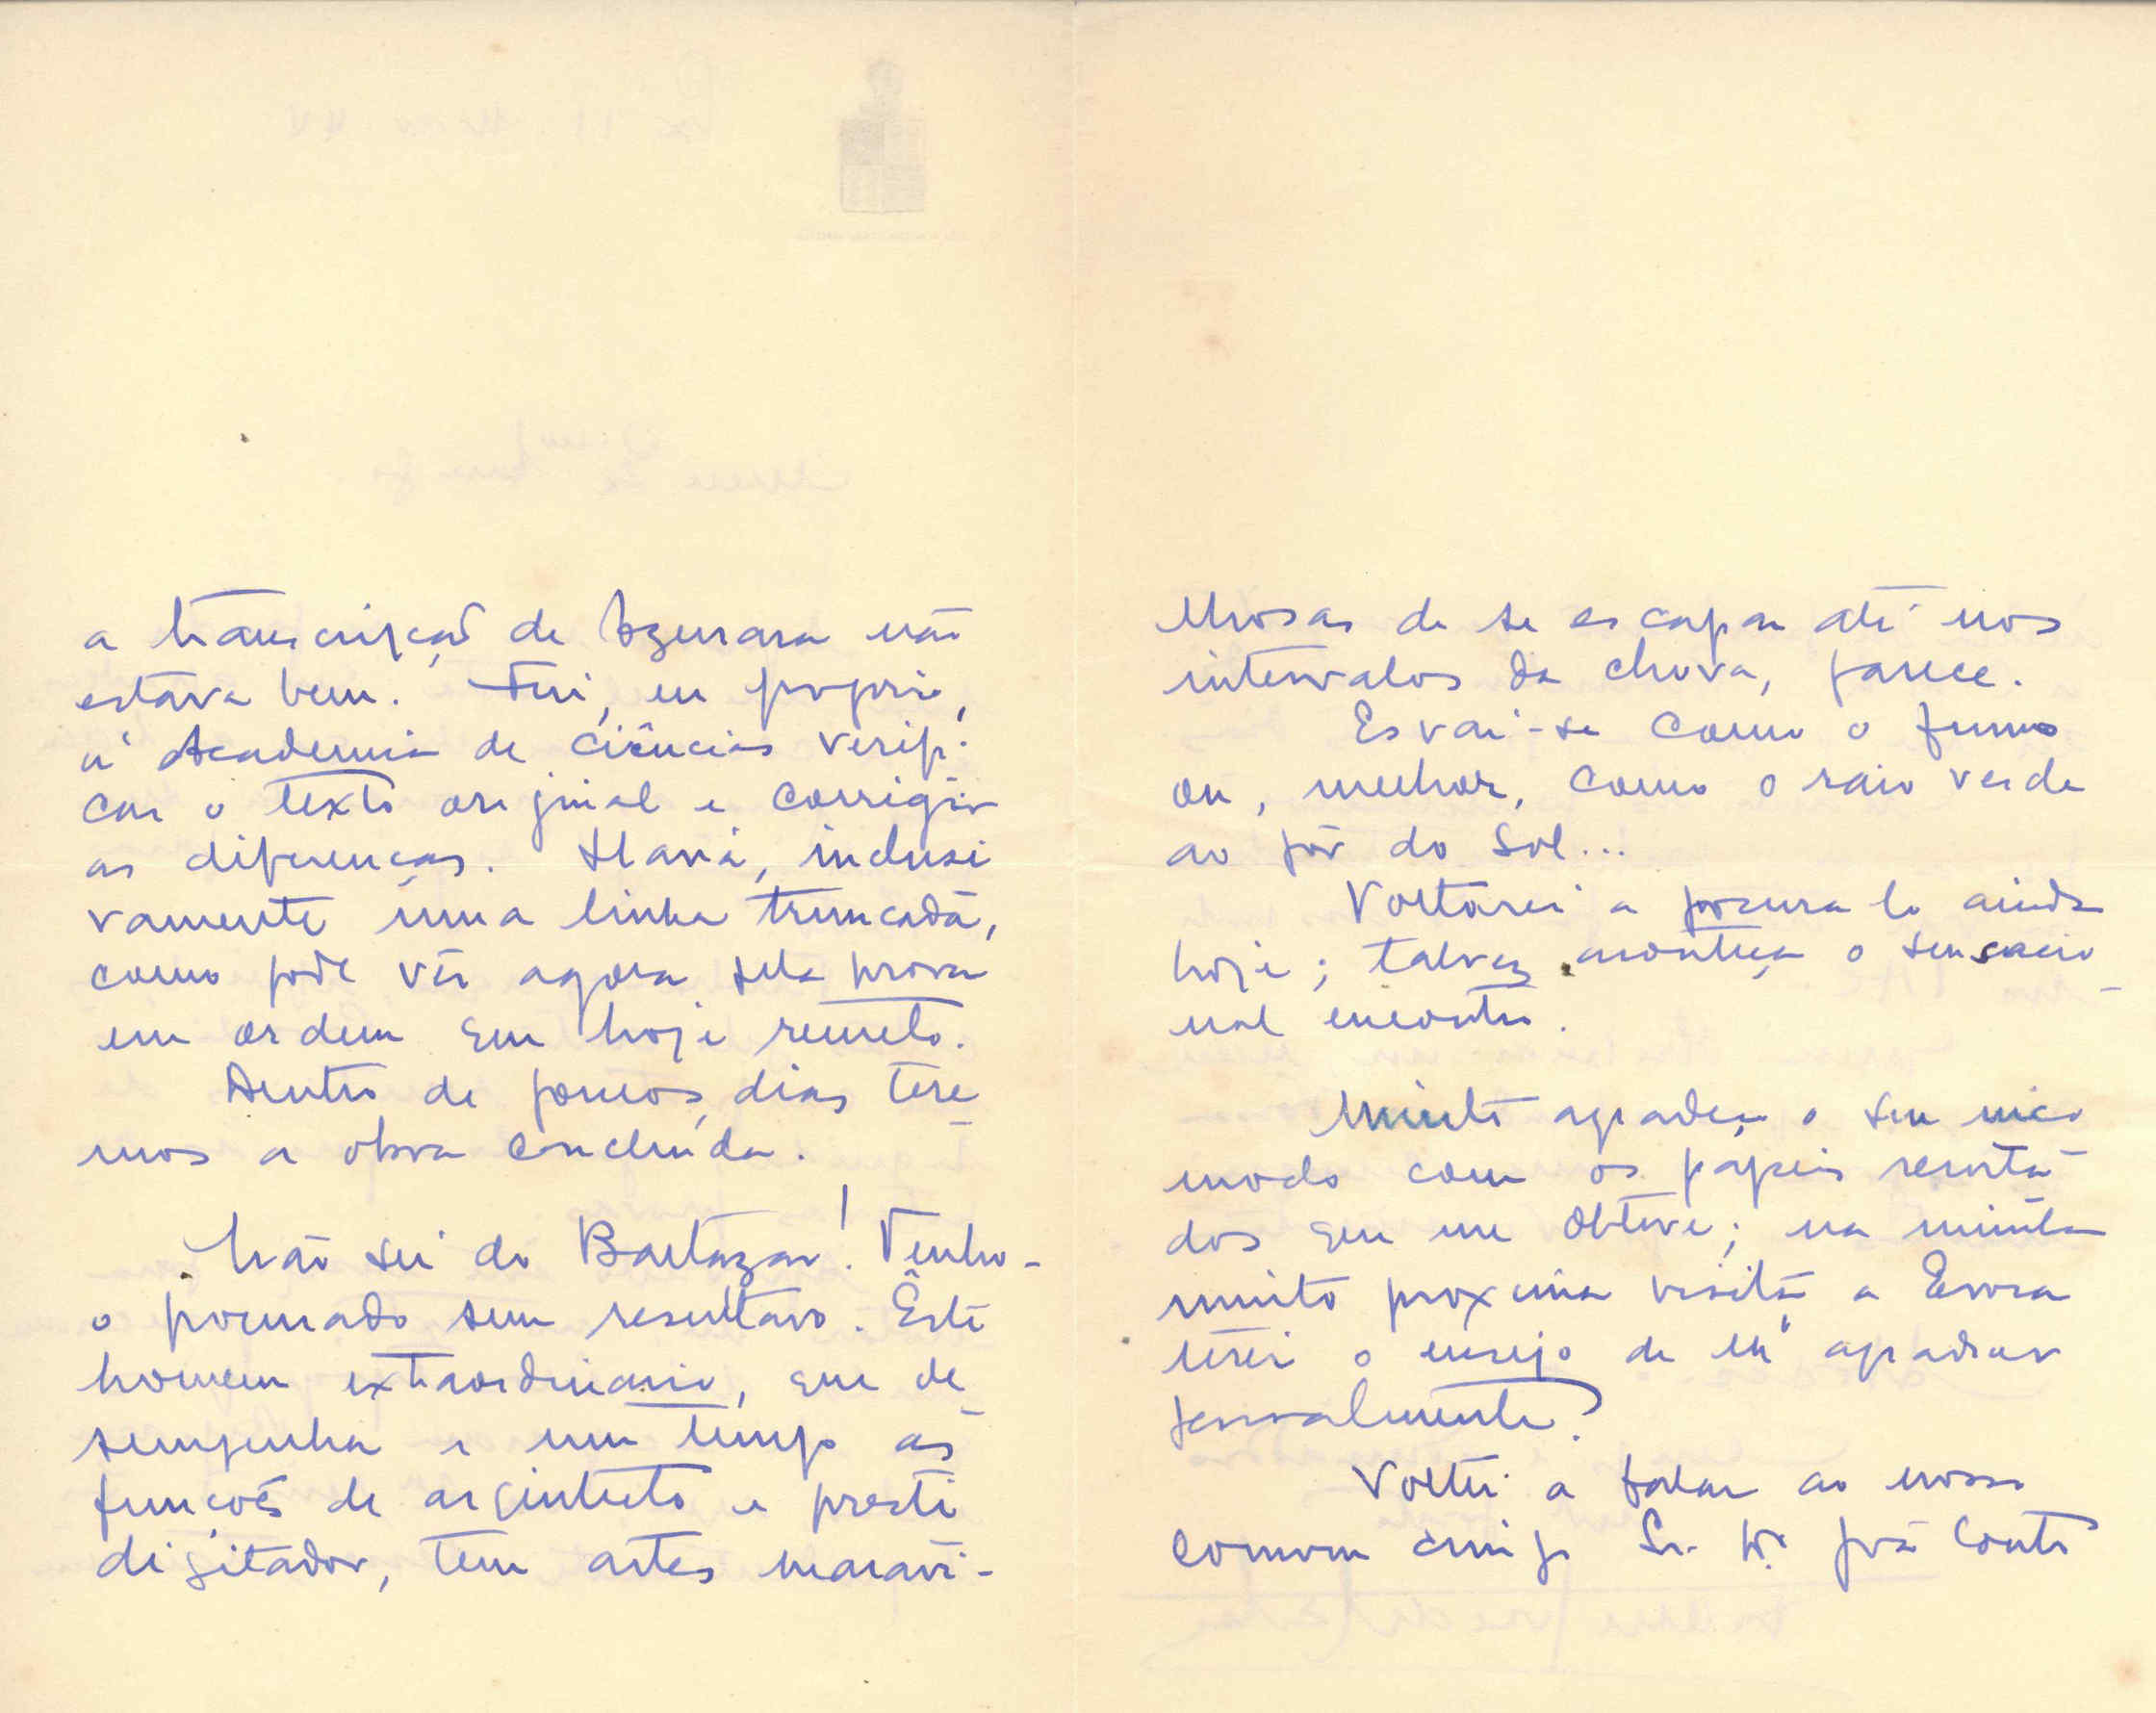 a transcrição de Azurara não
estava bem. Fui, eu proprio,
á Academia de Ciências verifi-
car o texto original e corrigir
as diferenças. Havia, inclusi
vamente uma linha truncada,
como pode vêr agora pela prova
em ordem que hoje remeto.
Dentro de poucos dias tere
mos a obra concluída.
Não sei do Baltazar! Tenho-
o procurado sem resultado. Êste
homem extraordinario, que de
sempenha a um tempo as
funções de arquiteto e presti
digitador, tem artes maravi-
lhosas de se escapar até nos
intervalos da chuva, parece.
Esvai-se como o fumo
ou, melhor, como o raio verde
ao pôr do Sol...
Voltarei a procura lo ainda
hoje; talvez aconteça o sensacio
nal encontro.
Muito agradeço o seu inco
modo com os papeis
dos que me obteve; na minha
muito proxima visita a Evora
terei o ensejo de lh'agradecer
pessoalmente?
Voltei a falar ao nosso
comum amigo Sr. Dr. Couto